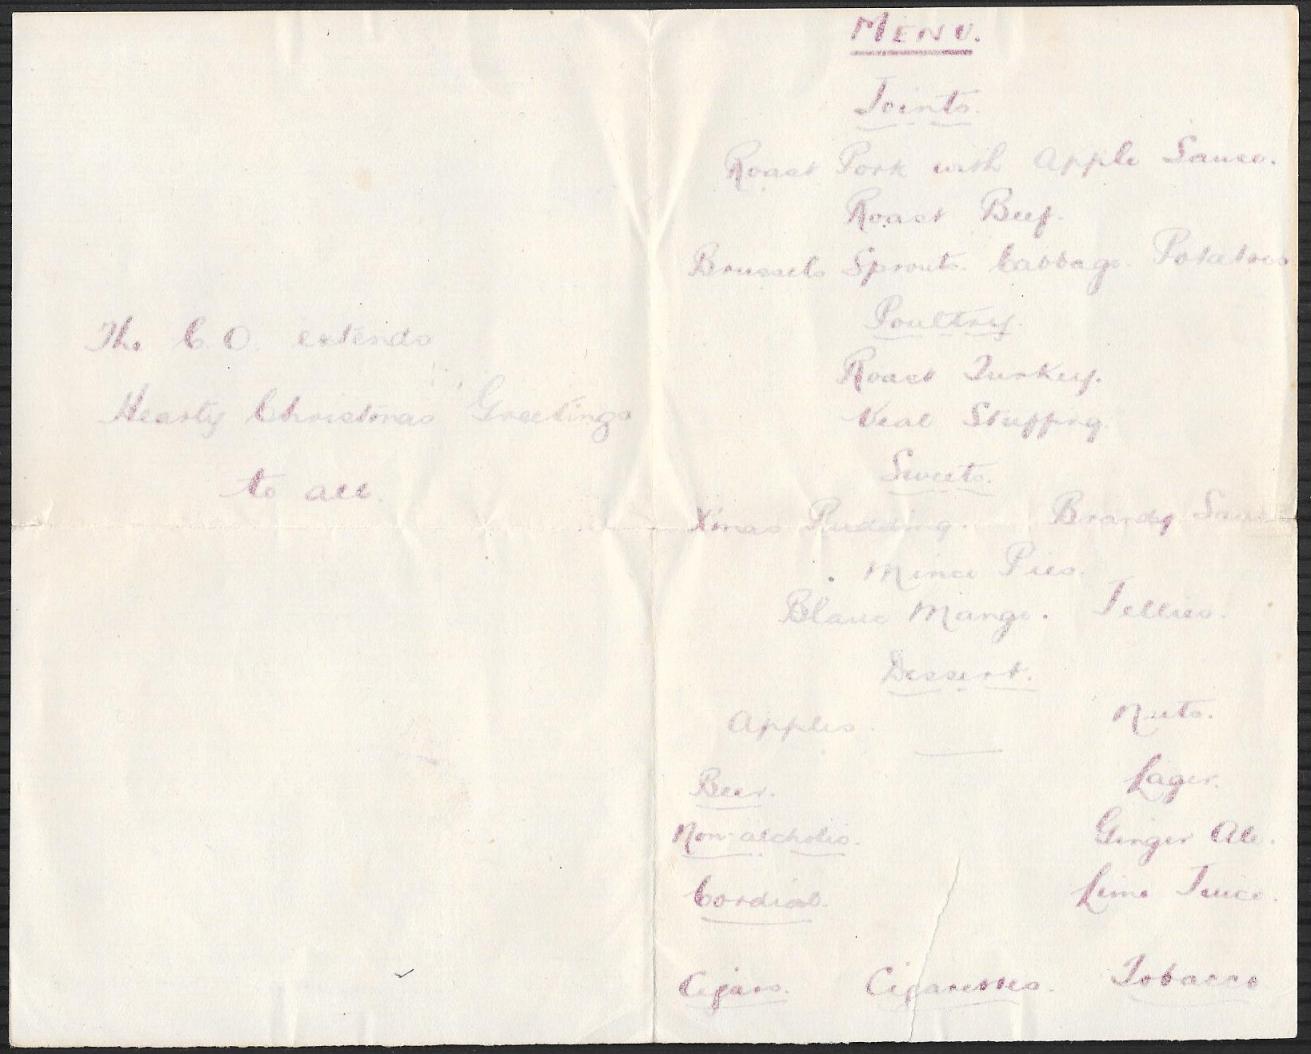 The C.O. extends
Hearty Christmas Greetings
to all.
MENU.
Joints.
Roast Pork with Apple Sauce.
Roast Beef.
Brussels Sprouts. Cabbage. Potatoes
Poultry.
Roast Turkey.
Veal Stuffing.
Sweets.
Xmas Pudding. Brandy Sauce
Mince Pies.
Blanc Mange. Jellies.
Dessert.
Apples. Nuts.
Beer. Lager.
Non-alcholic. Ginger Ale.
Cordial. Lime Juice.
Cigars. Cigarettes. Tobacco